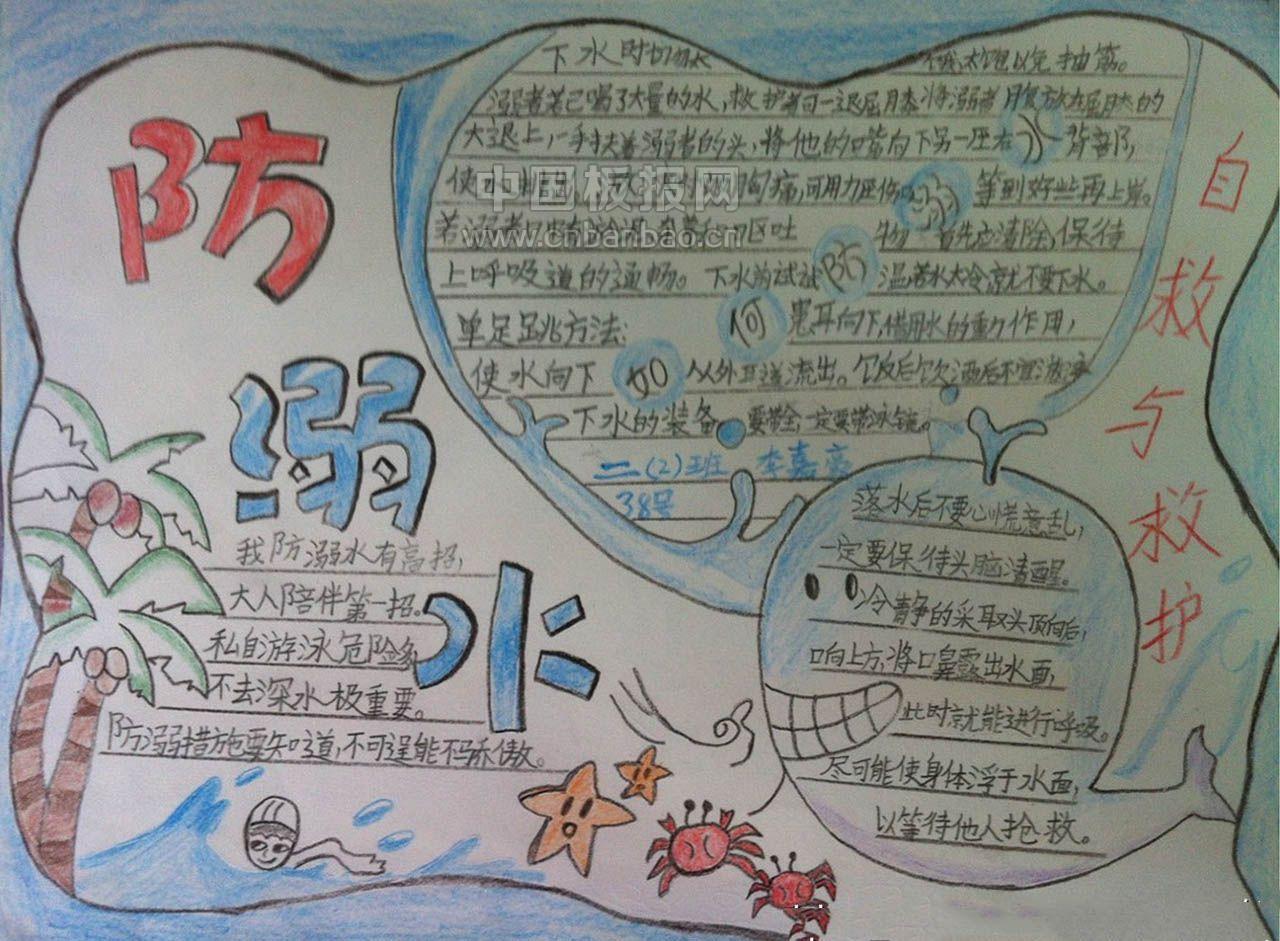 防
溺
水
自救与救护
下水时切勿太
饿、太饱以免抽筋。
溺者若已喝了大量的水，救护者可一退屈膝将溺者腹放在屈膝的
大退上，一手扶着溺者的头，将他的嘴向下另一
背部，
使水排出
等到好些再上岸。
若溺者
呕吐
物 首先应清除，保待
上呼吸道的通畅。下水前试试
温若水太冷就不要下水。
单足跳方法：
患耳向下，借用水的重力作用，
使水向下
从外耳道流出。饭后饮酒后不宜游泳
下水的装备
要带全一定要带泳镜。
如何防溺水
二(2)班 李嘉
38号
我防溺水有高招，
大人陪伴第一招。
私自游泳危险多
不去深水极重要。
防溺措施要知道，不可逞能不骄傲。
落水后不要心慌意乱，
一定要保待头脑清醒。
冷静的采取头顶向后，
口向上方，将口鼻露出水面，
此时就能进行呼吸。
尽可能使身体浮于水面，
以等待他人抢救。
中国板报网
www.cnbanbao.cn